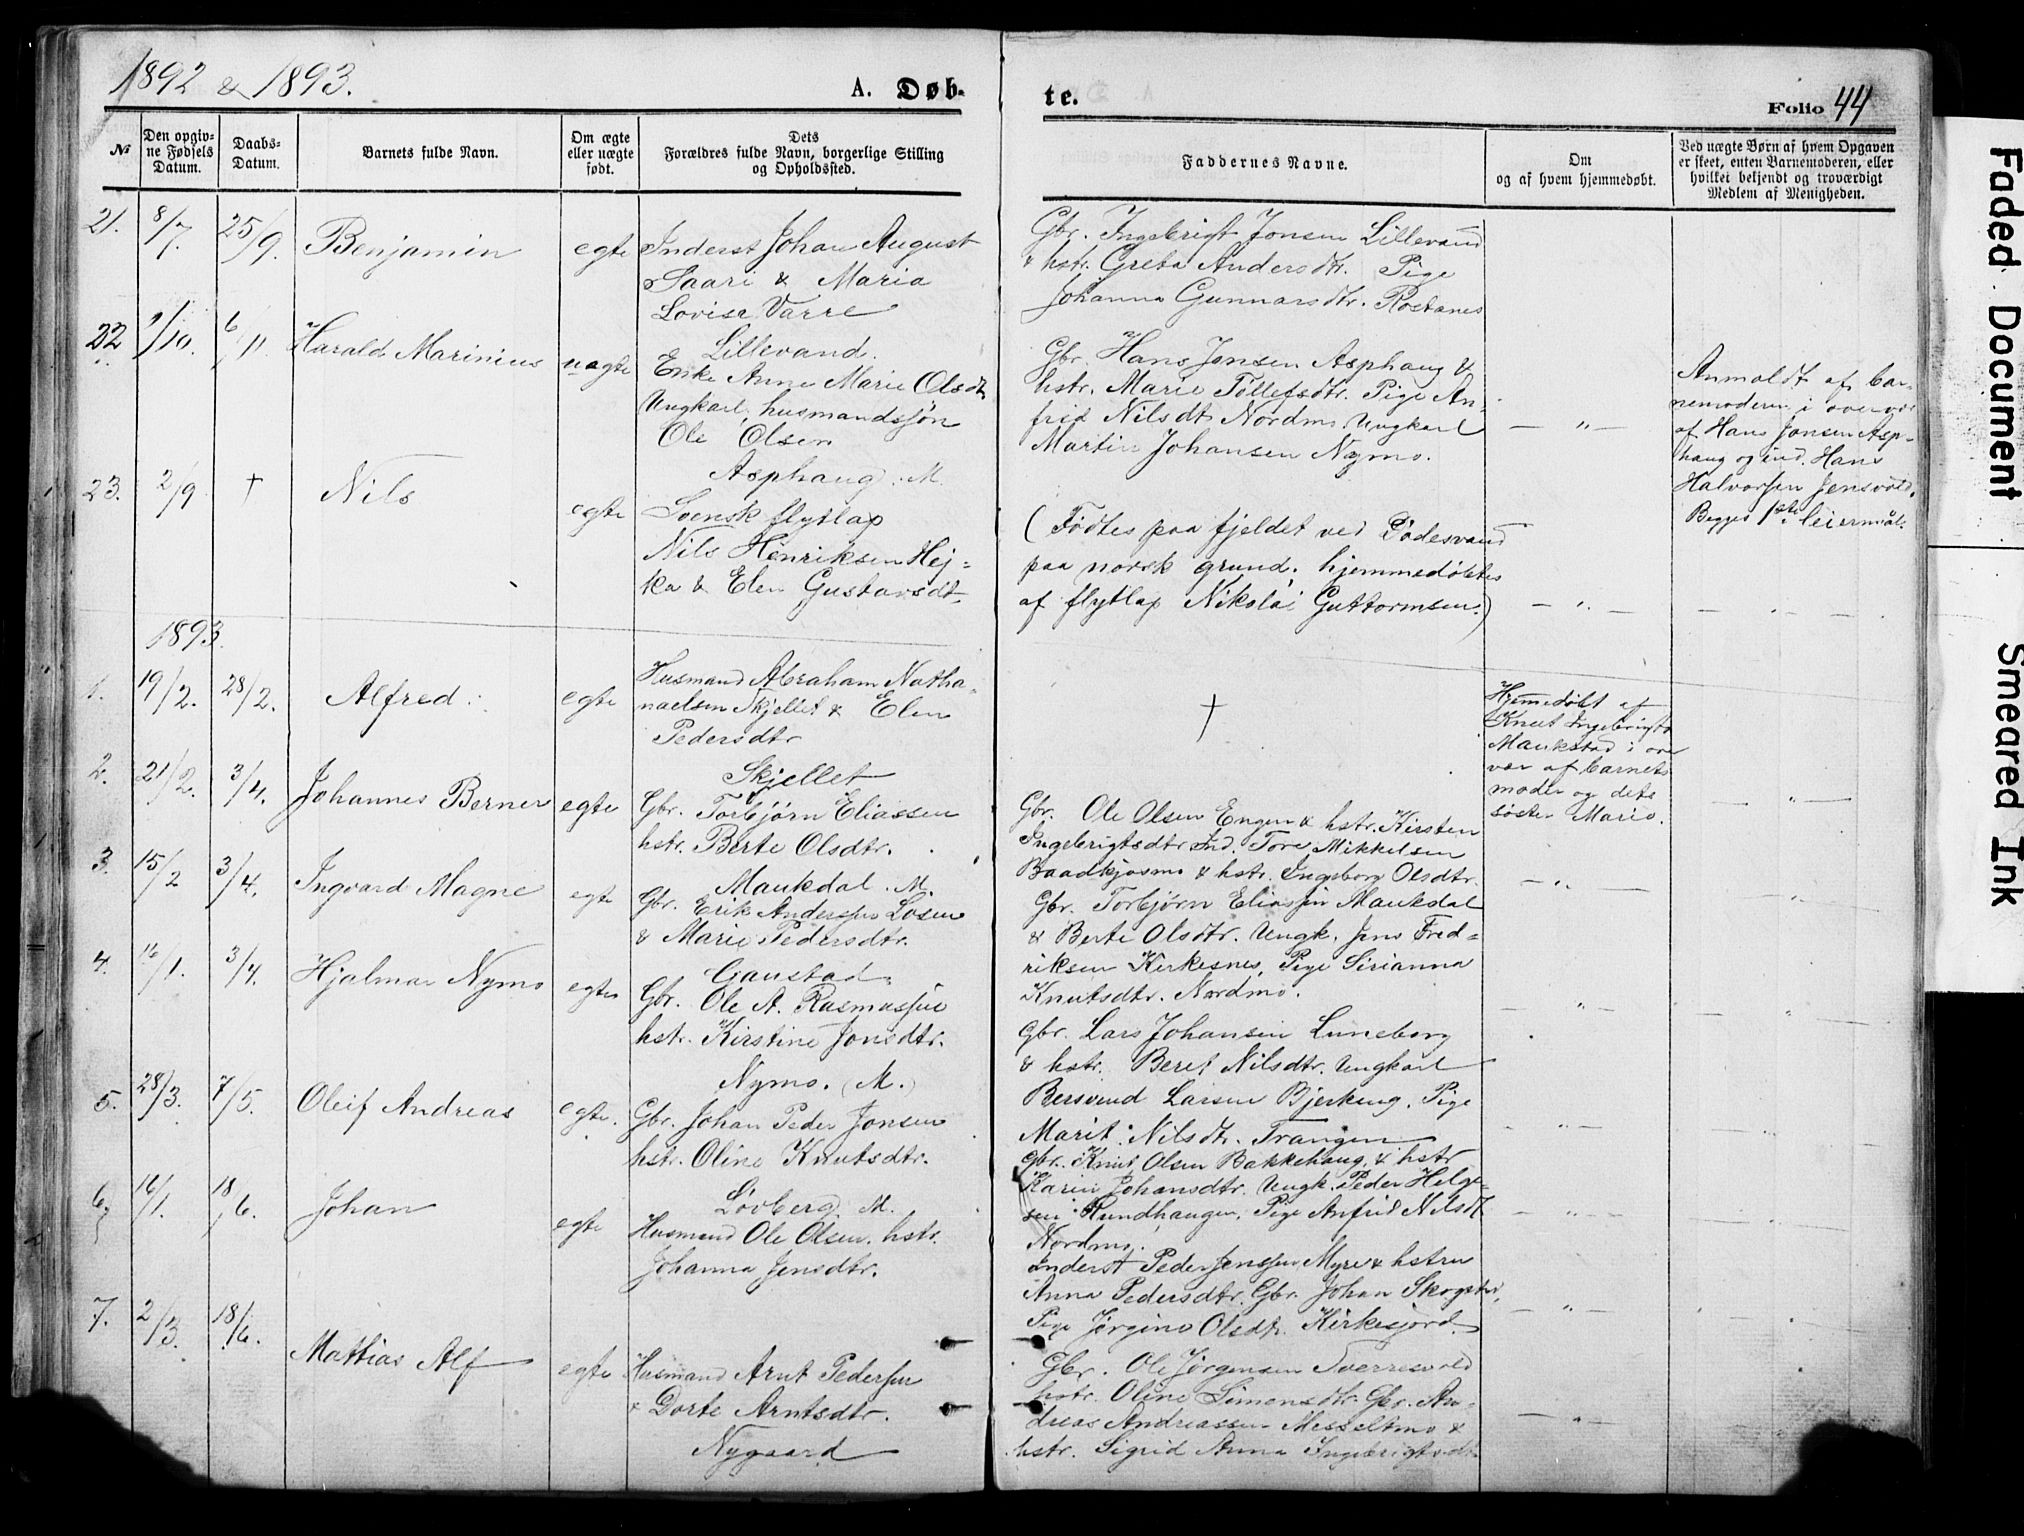 1892 & 1893.
A. Døb-
te.
Folio 44
№
Den opgiv-
ne Fødsels
Datum.
Daabs-
Datum.
Barnets fulde Navn.
Om ægte
eller uægte
født.
Dets
Forældres fulde Navn, borgerlige Stilling
og Opholdssted.
Faddernes Navne.
Om
og af hvem hjemmedøbt.
Ved uægte Børn af hvem Opgaven
er skeet, enten Barnemoderen, eller
hvilket bekjendt og troværdigt
Medlem af Menigheden.
21. 8/7. 25/9. Benjamin egte
Inderst Johan August
Saari & Maria
Lovise Varre
Lillevand.
Gbr. Ingebrigt Jonsen Lillevand
& hstr. Greta Andersdtr. Pige
Johanna Gunnarsdtr. Rostanes
22 /10. 6/11. Harald Marinius uægte
Enke Anne Marie Olsdt
Ungkarl, husmandssøn
Ole Olsen
Asphaug. M.
Gbr. Hans Jonsen Asphaug &
hstr. Marie Tollefsdtr. Pige An-
frid Nilsdt Nordmo Ungkarl
Martin Johansen Nymo.
— " —
Anmeldt af bar-
nemoderen i overvær
af Hans Jonsen Asp-
haug og ind. Hans
Halvorsen Jensvold.
Begges 1ste leiermål.
23. 2/9 † Nils egte
Svensk flytlap
Nils Henriksen Hej-
ka & Elen Gustavsdt.
(Fødtes paa fjeldet ved Dødesvand
paa norsk grund. hjemmedøbtes
af flytlap Nikolai Guttormsen.)
— " —
— " —
1893.
1. 19/2. 28/2. Alfred. egte
Husmand Abraham Natha-
naelsen Skjellet & Elen
Pedersdtr
Skjellet
†
Hjemmedøbt af
Knut Ingebrigts
Maukstad i over
vær af barnets
moder og dets
søster Marie.
— " —
2. 21/2. 3/4. Johannes Berner egte
Gbr. Torbjørn Eliassen
hstr. Berte Olsdtr.
Maukdal. M.
Gbr. Ole Olsen Engen & hstr. Kirsten
Ingebrigtsdtr Ind. Tore Mikkelsen
Baadkjosmo & hstr. Ingeborg Olsdtr.
— " —
— " —
3. 15/2 3/4. Ingvard Magne egte
Gbr. Erik Anderssen Losen
& Marie Pedersdtr.
Gaustad.
Gbr. Torbjørn Eliassen Maukdal
& Berte Olsdtr. Ungk. Jens Fred-
riksen Kirkesnes, Pige Sirianna
Knutsdtr. Nordmo.
— " —
— " —
4. 16/1. 3/4. Hjalmar Nymo egte
Gbr. Ole A. Rasmussen
hstr. Kirstine Jonsdtr.
Nymo. (M.)
Gbr. Lars Johansen Luneborg
& hstr. Beret Nilsdtr. Ungkarl
Bersvend Larsen Bjerkeng. Pige
Marit Nilsdtr. Trangen
— " —
— " —
5. 28/3. 7/5. Oleif Andreas egte.
Gbr. Johan Peder Jonsen
hstr. Oline Knutsdtr.
Løvberg. M.
Gbr. Knut Olsen Bakkehaug, & hstr
Karen Johansdtr. Ungk. Peder Helge-
sen Rundhaugen, Pige Anfrid Nilsdt
Nordmo.
— " —
— " —
6. 16/1. 18/6. Johan egte
Husmand Ole Olsen. hstr.
Johanna Jensdtr.
Inderst Peder Jenssen Myre & hstru
Anna Pedersdtr. Gbr. Johan Skogstad,
Pige Jørgine Olsdtr. Kirkesjord.
— " —
7. 2/3. 18/6. Mathias Alf egte
Husmand Arnt Pedersen
& Dorte Arntsdtr.
Nygaard
Gbr. Ole Jørgensen Sverresvold
hstr. Oline Simonsdtr. Gbr. An-
dreas Andreassen Messeltmo &
hstr. Sigrid Anna Ingebrigtsdt.
— " —
Faded Document
Smeared Ink